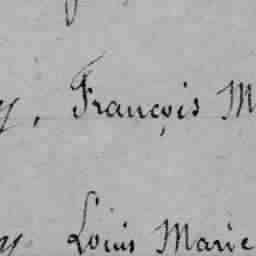 y, François M
y Louis Marie